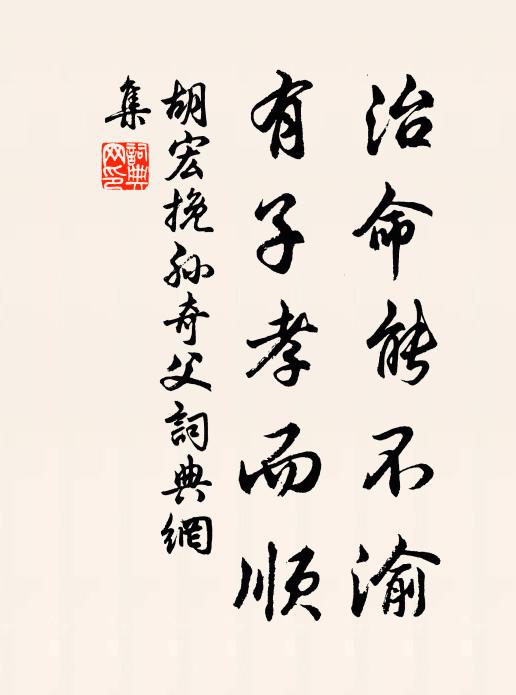 治命能不渝
有子孝而顺
胡宏挽孙奇父詞典網
集
詞典
网印